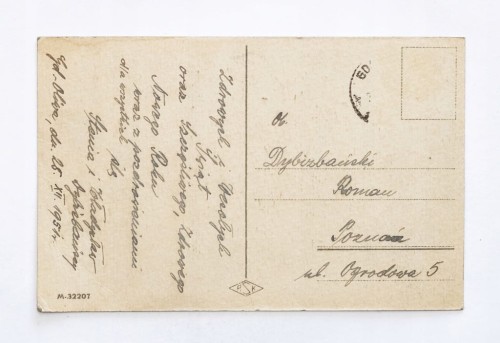 Zdrowych i Wesołych
Świąt
oraz Szczęśliwego, Zdrowego
Nowego Roku
wraz z pozdrowieniami
dla wszystkich
Stenia i Władysław
Dybizbańscy
Gd-Oliwa, dn. 25. XII. 1951r.
M-32207
P K
Ob.
Dybizbański
Roman
Poznań
ul. Ogrodowa 5